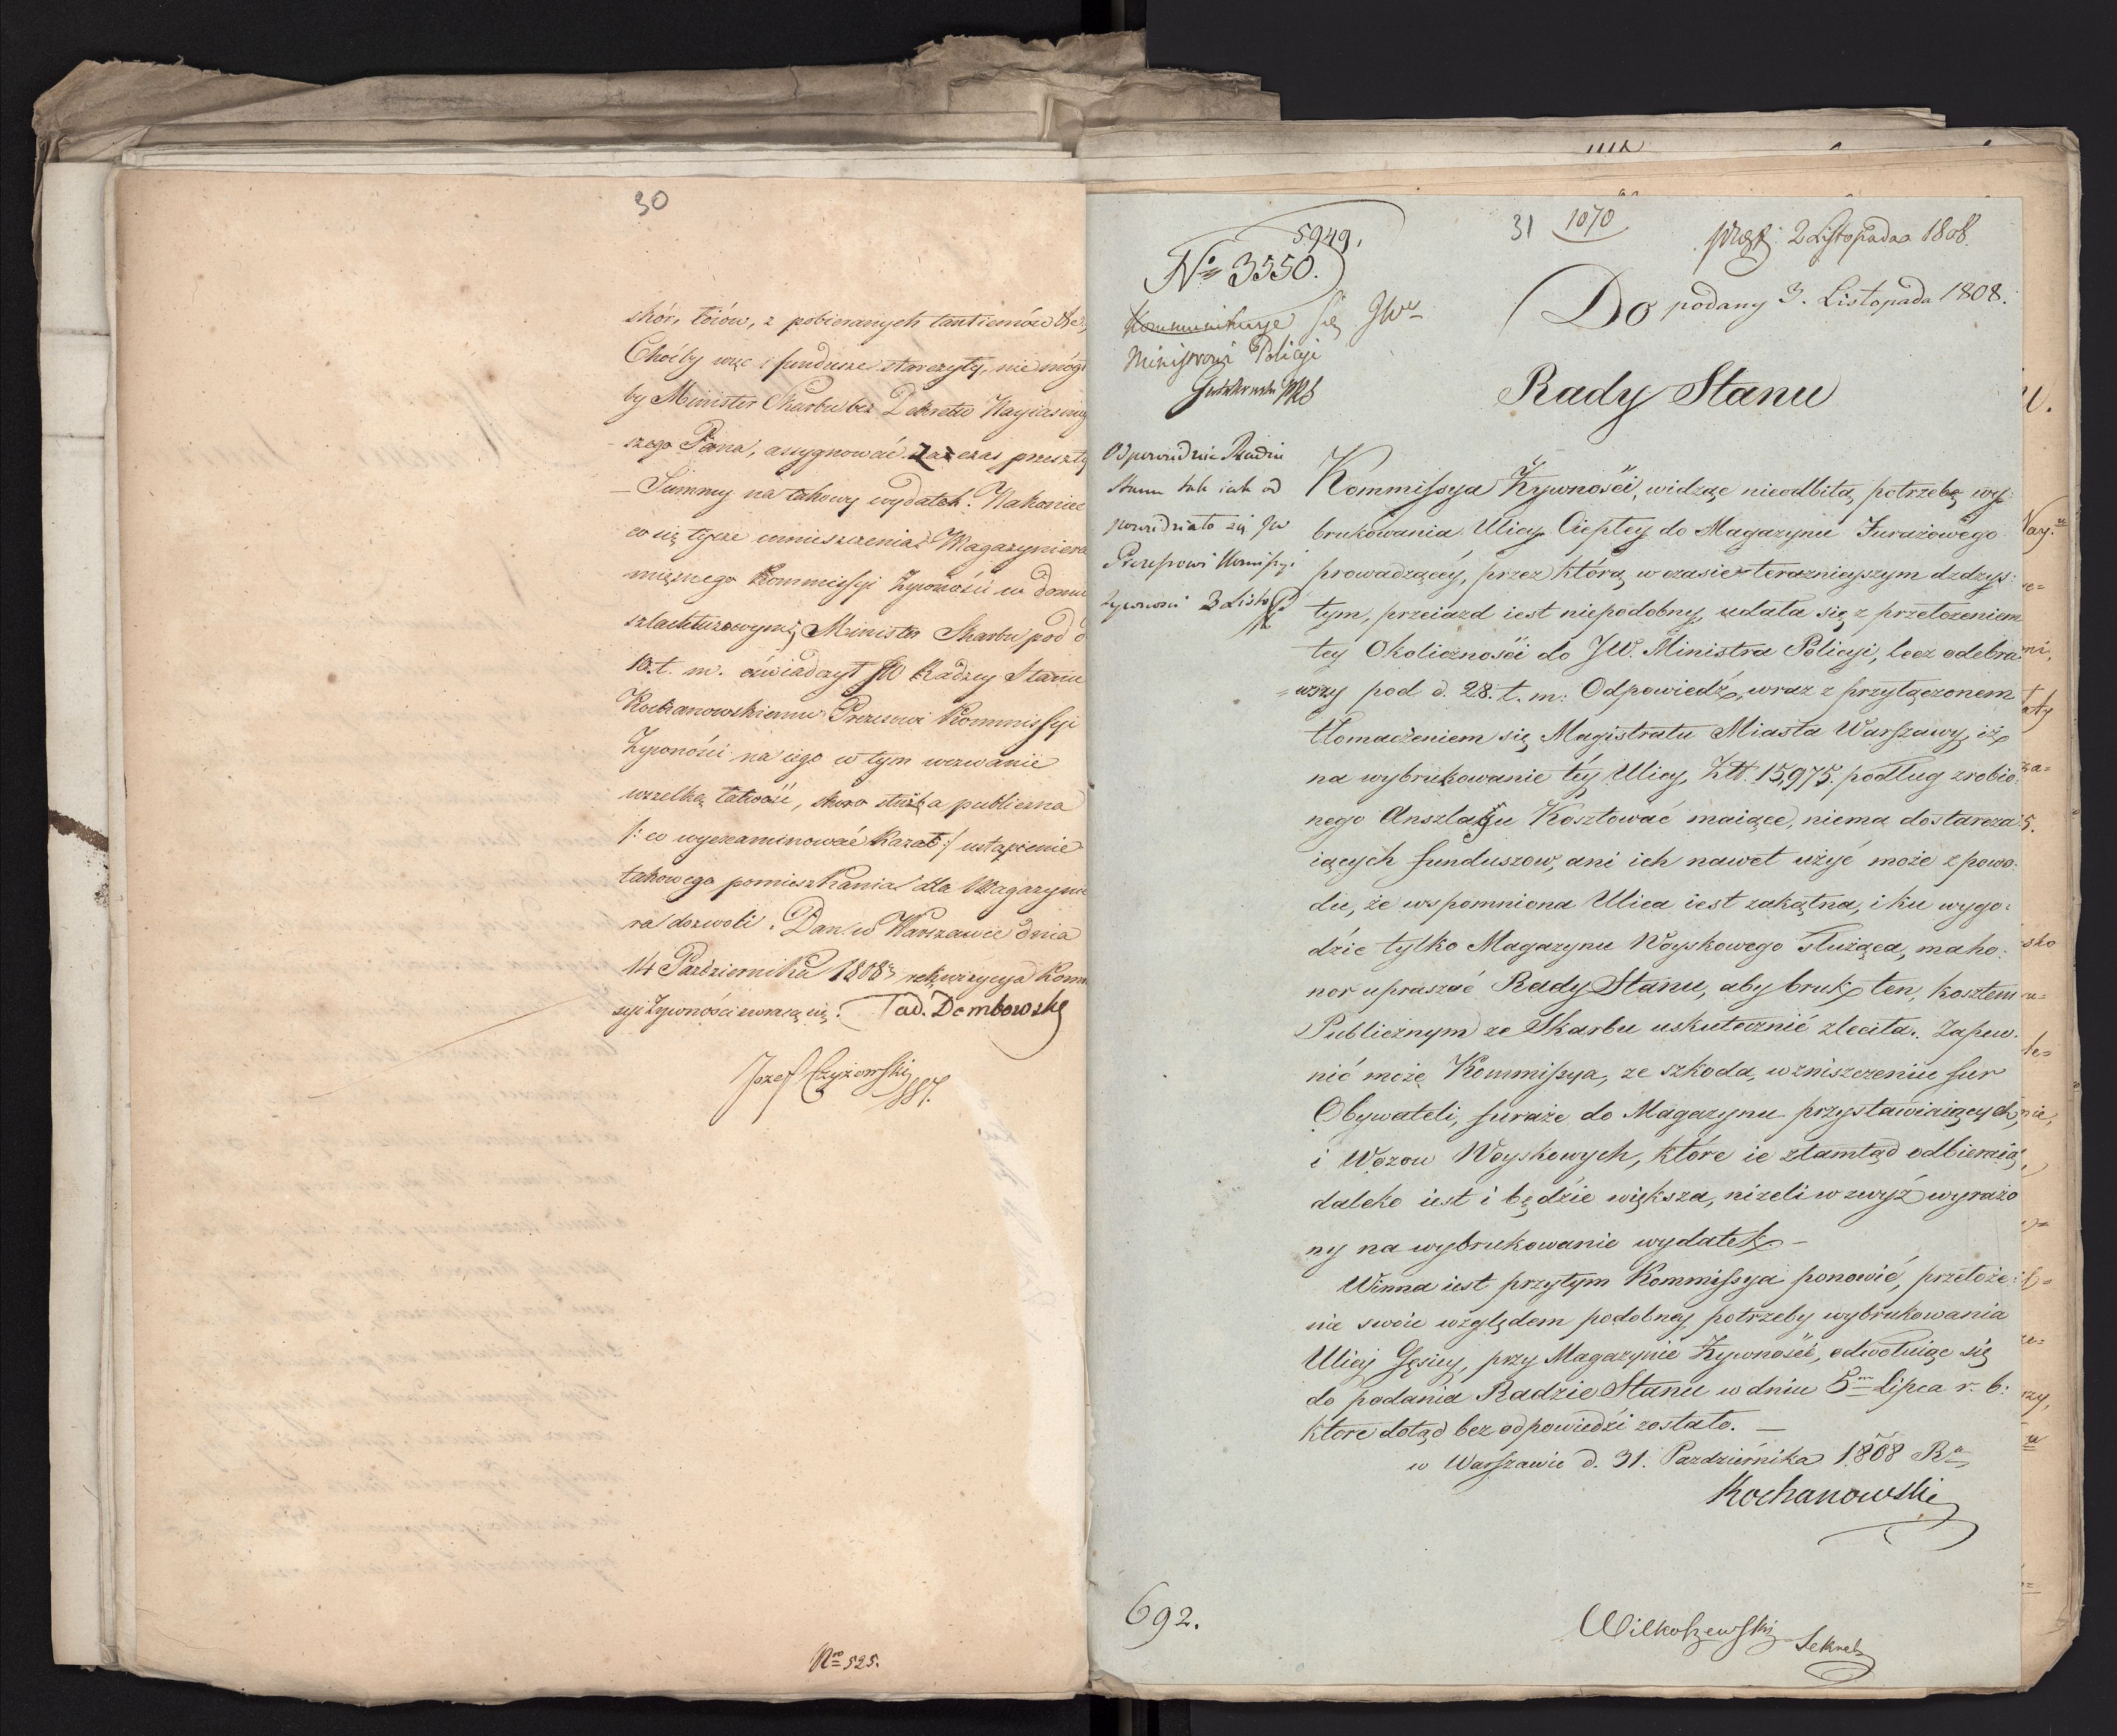 30
skór, łoiów, z pobieranych tantiemów &c
Choćby więc i fundusze starczyły, nie mógł
by Minister Skarbu bez Dekretu Nayiaśniey
szego Pana, assygnować za czas przeszły
Summy na takowy wydatek. Nakoniec
co się tycze umieszczenia Magazyniera
mięsnego Kommissyi Żywności w domu
szlachtuzowym, Minister Skarbu pod d
10. t. m. oświadczył JW Radzcy Stanu
Kochanowskiemu Prezesowi Kommissyi
Żywności na iego w tym wezwanie
wszelką łatwość, skoro służba publiczna
/: co wyexaminować kazał :/ ustąpienie
takowego pomieszkania dla Magazynie
ra dozwoli. Dan w Warszawie dnia
14 Października 1808 rekwizycya Kom
syi Żywności zwraca się. Tad. Dembowski
Jozef Czyżowski
Nro 525.
5949.
No 3550.
31 1070
2 Listopada 1808.
Do podany 3. Listopada 1808.
Kommunikuje się JWu
Ministrowi Policyi
Rady Stanu
Odpowiedzieć Radzie
Stanu tak iak od
powiedziało się JW
Prezesowi Komissyi
żywności 3 Listop
Kommissya Żywności, widząc nieodbitą potrzebę wy:
brukowania Ulicy Ciepłey do Magazynu Furażowego
prowadzącéy, przez którą w czasie teraznieyszym dżdżys:
tym, przeiazd iest niepodobny, udała się z przełożeniem
tey Okoliczności do JW. Ministra Policyi, lecz odebra
=wszy pod d. 28. t. m: Odpowiedź, wraz z przyłączonem
tłomaczeniem się Magistratu Miasta Warszawy, iż
na wybrukowanie téy Ulicy, Złł. 15,975. podług zrobio:
nego Anszlagu Kosztować maiące, niema dostarcza
iących funduszow, ani ich nawet użyć może z powo:
du, że wspomniona Ulica iest zakątna, i ku wygo:
dzie tylko Magazynu Woyskowego służąca, ma ho:
nor upraszać Rady Stanu, aby bruk ten, kosztem
Publicznym ze Skarbu uskutecznić zleciła. Zapew:
nić może Kommissya, ze szkoda, w zniszczeniu fur
Obywateli, furaże do Magazynu przystawiaiących,
i Wozow Woyskowych, które ie ztamtąd odbieraią,
daleko iest i będzie większa, niżeli w zwyż wyrażo
ny na wybrukowanie wydatek –
Winna iest przytym Kommissya ponowić, przełoże:
nie swoie względem podobney potrzeby wybrukowania
Ulicy Gęsiey, przy Magazynie Żywności, odwołuiąc się
do podania Radzie Stanu w dniu 5m Lipca r. b:
ktore dotąd bez odpowiedzi zostało. —
w Warszawie d. 31. Pazdziernika 1808 Ru
Kochanowski
692.
Wilkoszewski Sekret